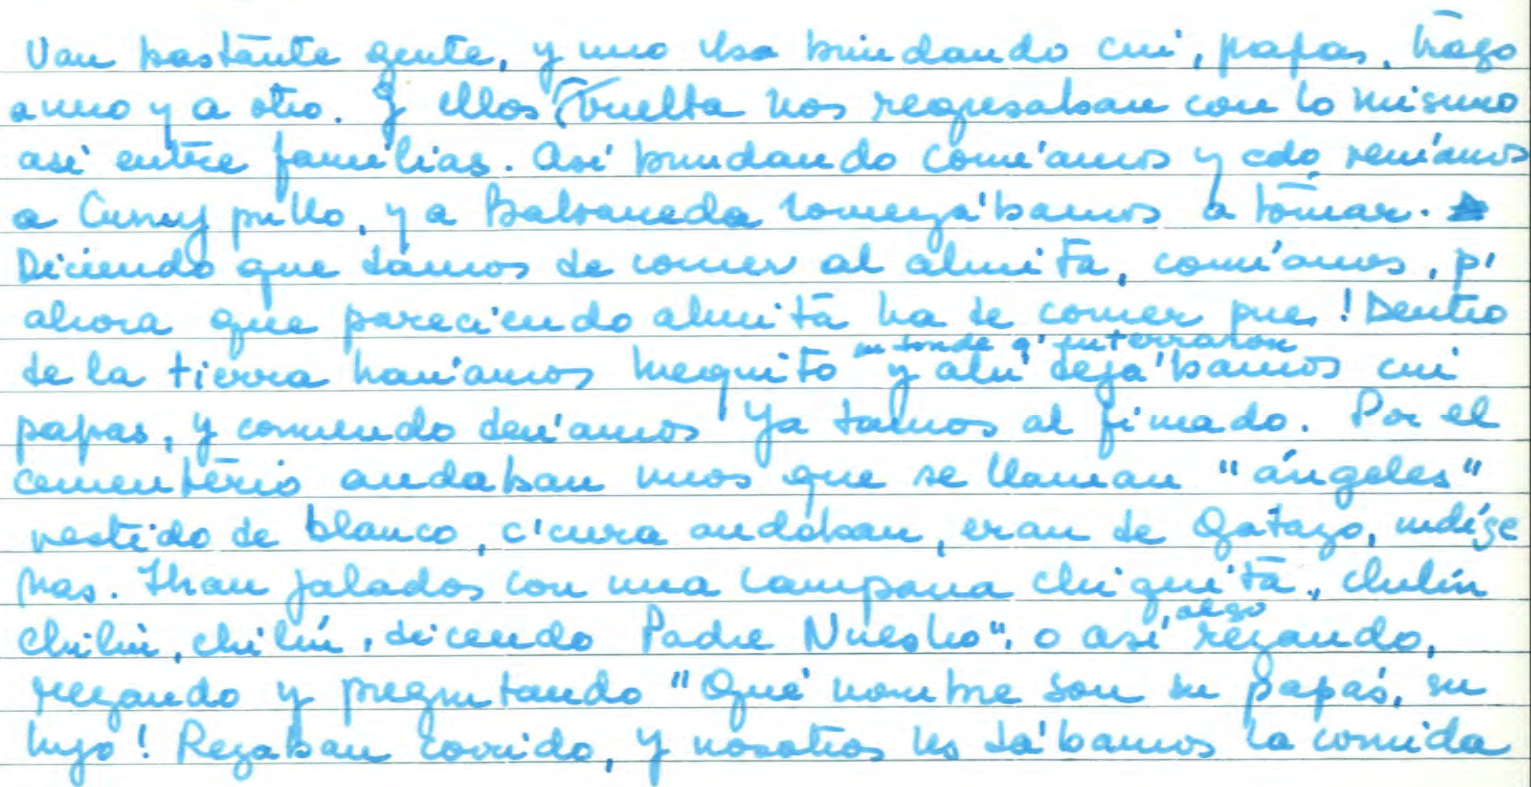 Van bastante gente, y uno iba brindando cui, papas, trago
a uno y a otro. Y ellos vuelta nos regresaban con lo mismo
así entre familias. Así brindando comíamos y cdo veníamos
a Cunuj pullo, y a Balvaneda comenzábamos a tomar.
Diciendo que damos de comer al almita, comíamos, p'
ahora que pareciendo almita ha de comer pue! Dentro
en donde q' enterraron
de la tierra hacíamos huequito y ahí dejábamos cui
papas, y comendo decíamos Ya damos al finado. Por el
cementerio andaban unos que se llaman "ángeles"
vestido de blanco, c'cura andaban, eran de Gatazo, indíge
nas. Iban jalados con una campana chiquita, chilín
chilín, chilín, dicendo Padre Nuestro", o así, algo rezando,
rezando y preguntando "Qué nombre son su papás, su
hijo! Rezaban corrido, y nosotros les dábamos la comida